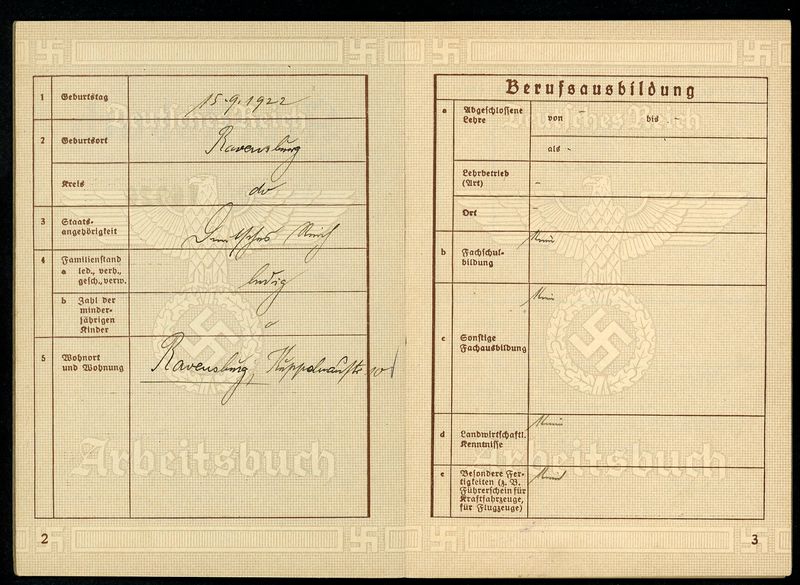 1 Geburtstag 15.9.1922
2 Geburtsort Ravensburg
Kreis do
3 Staats-
angehörigkeit Deutsches Reich
4 Familienstand
a led., verh.,
gesch., verw. ledig
b Zahl der
minder-
jährigen
Kinder
5 Wohnort
und Wohnung Ravensburg,
Deutsches Reich
Arbeitsbuch
2
Berufsausbildung
a Abgeschlossene
Lehre von - bis -
als -
Lehrbetrieb
(Art) -
Ort -
b Fachschul-
bildung
c Sonstige
Fachausbildung
d Landwirtschaftl.
Kenntnisse
e Besondere Fer-
tigkeiten (z. B.
Führerschein für
Kraftfahrzeuge,
für Flugzeuge)
Deutsches Reich
Arbeitsbuch
3